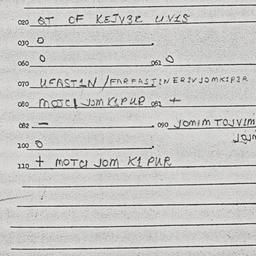 020 QT OF KEJV3R UVIS
030 0
060 0 061 0
070 UFASTIN / FARFASTINERIVJOMKIP3R
080 MOTCI JOM KIPUR 081 +
082 - 090 JOMIM TOJVIM
100 0
110 + MOTCI JOM KI PUR